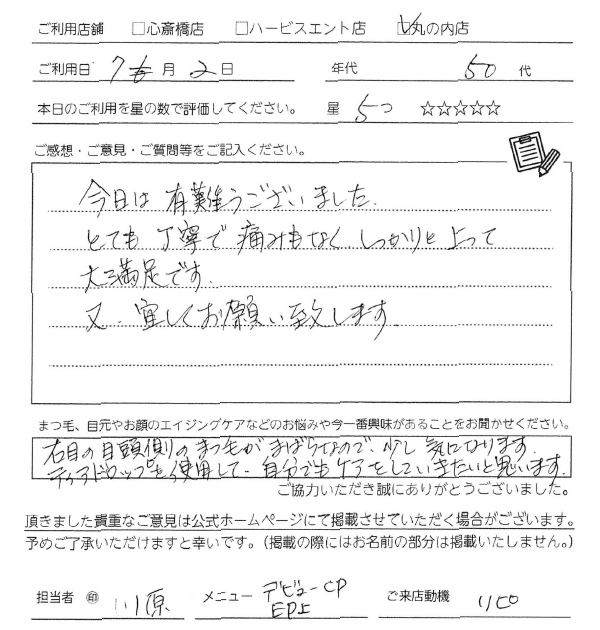 ご利用店舗 □心斎橋店 □ハービスエント店 □丸の内店
ご利用日 7月2日 年代 50代
本日のご利用を星の数で評価してください。 星 5つ ☆☆☆☆☆
ご感想・ご意見・ご質問等をご記入ください。
今日は有難うございました.
とても丁寧で痛みもなくしっかりと上って
大満足です.
又、宜しくお願い致します.
まつ毛、目元やお顔のエイジングケアなどのお悩みや今一番興味があることをお聞かせください。
右目の目頭側のまつ毛がまばらなので、少し気になります.
ティアドロップを使用して、自分でもケアをしていきたいと思います.
ご協力いただき誠にありがとうございました。
頂きました貴重なご意見は公式ホームページにて掲載させていただく場合がございます。
予めご了承いただけますと幸いです。(掲載の際にはお名前の部分は掲載いたしません。)
担当者 ㊞ 川原 メニュー デビューCP ご来店動機 リピロ
EP上